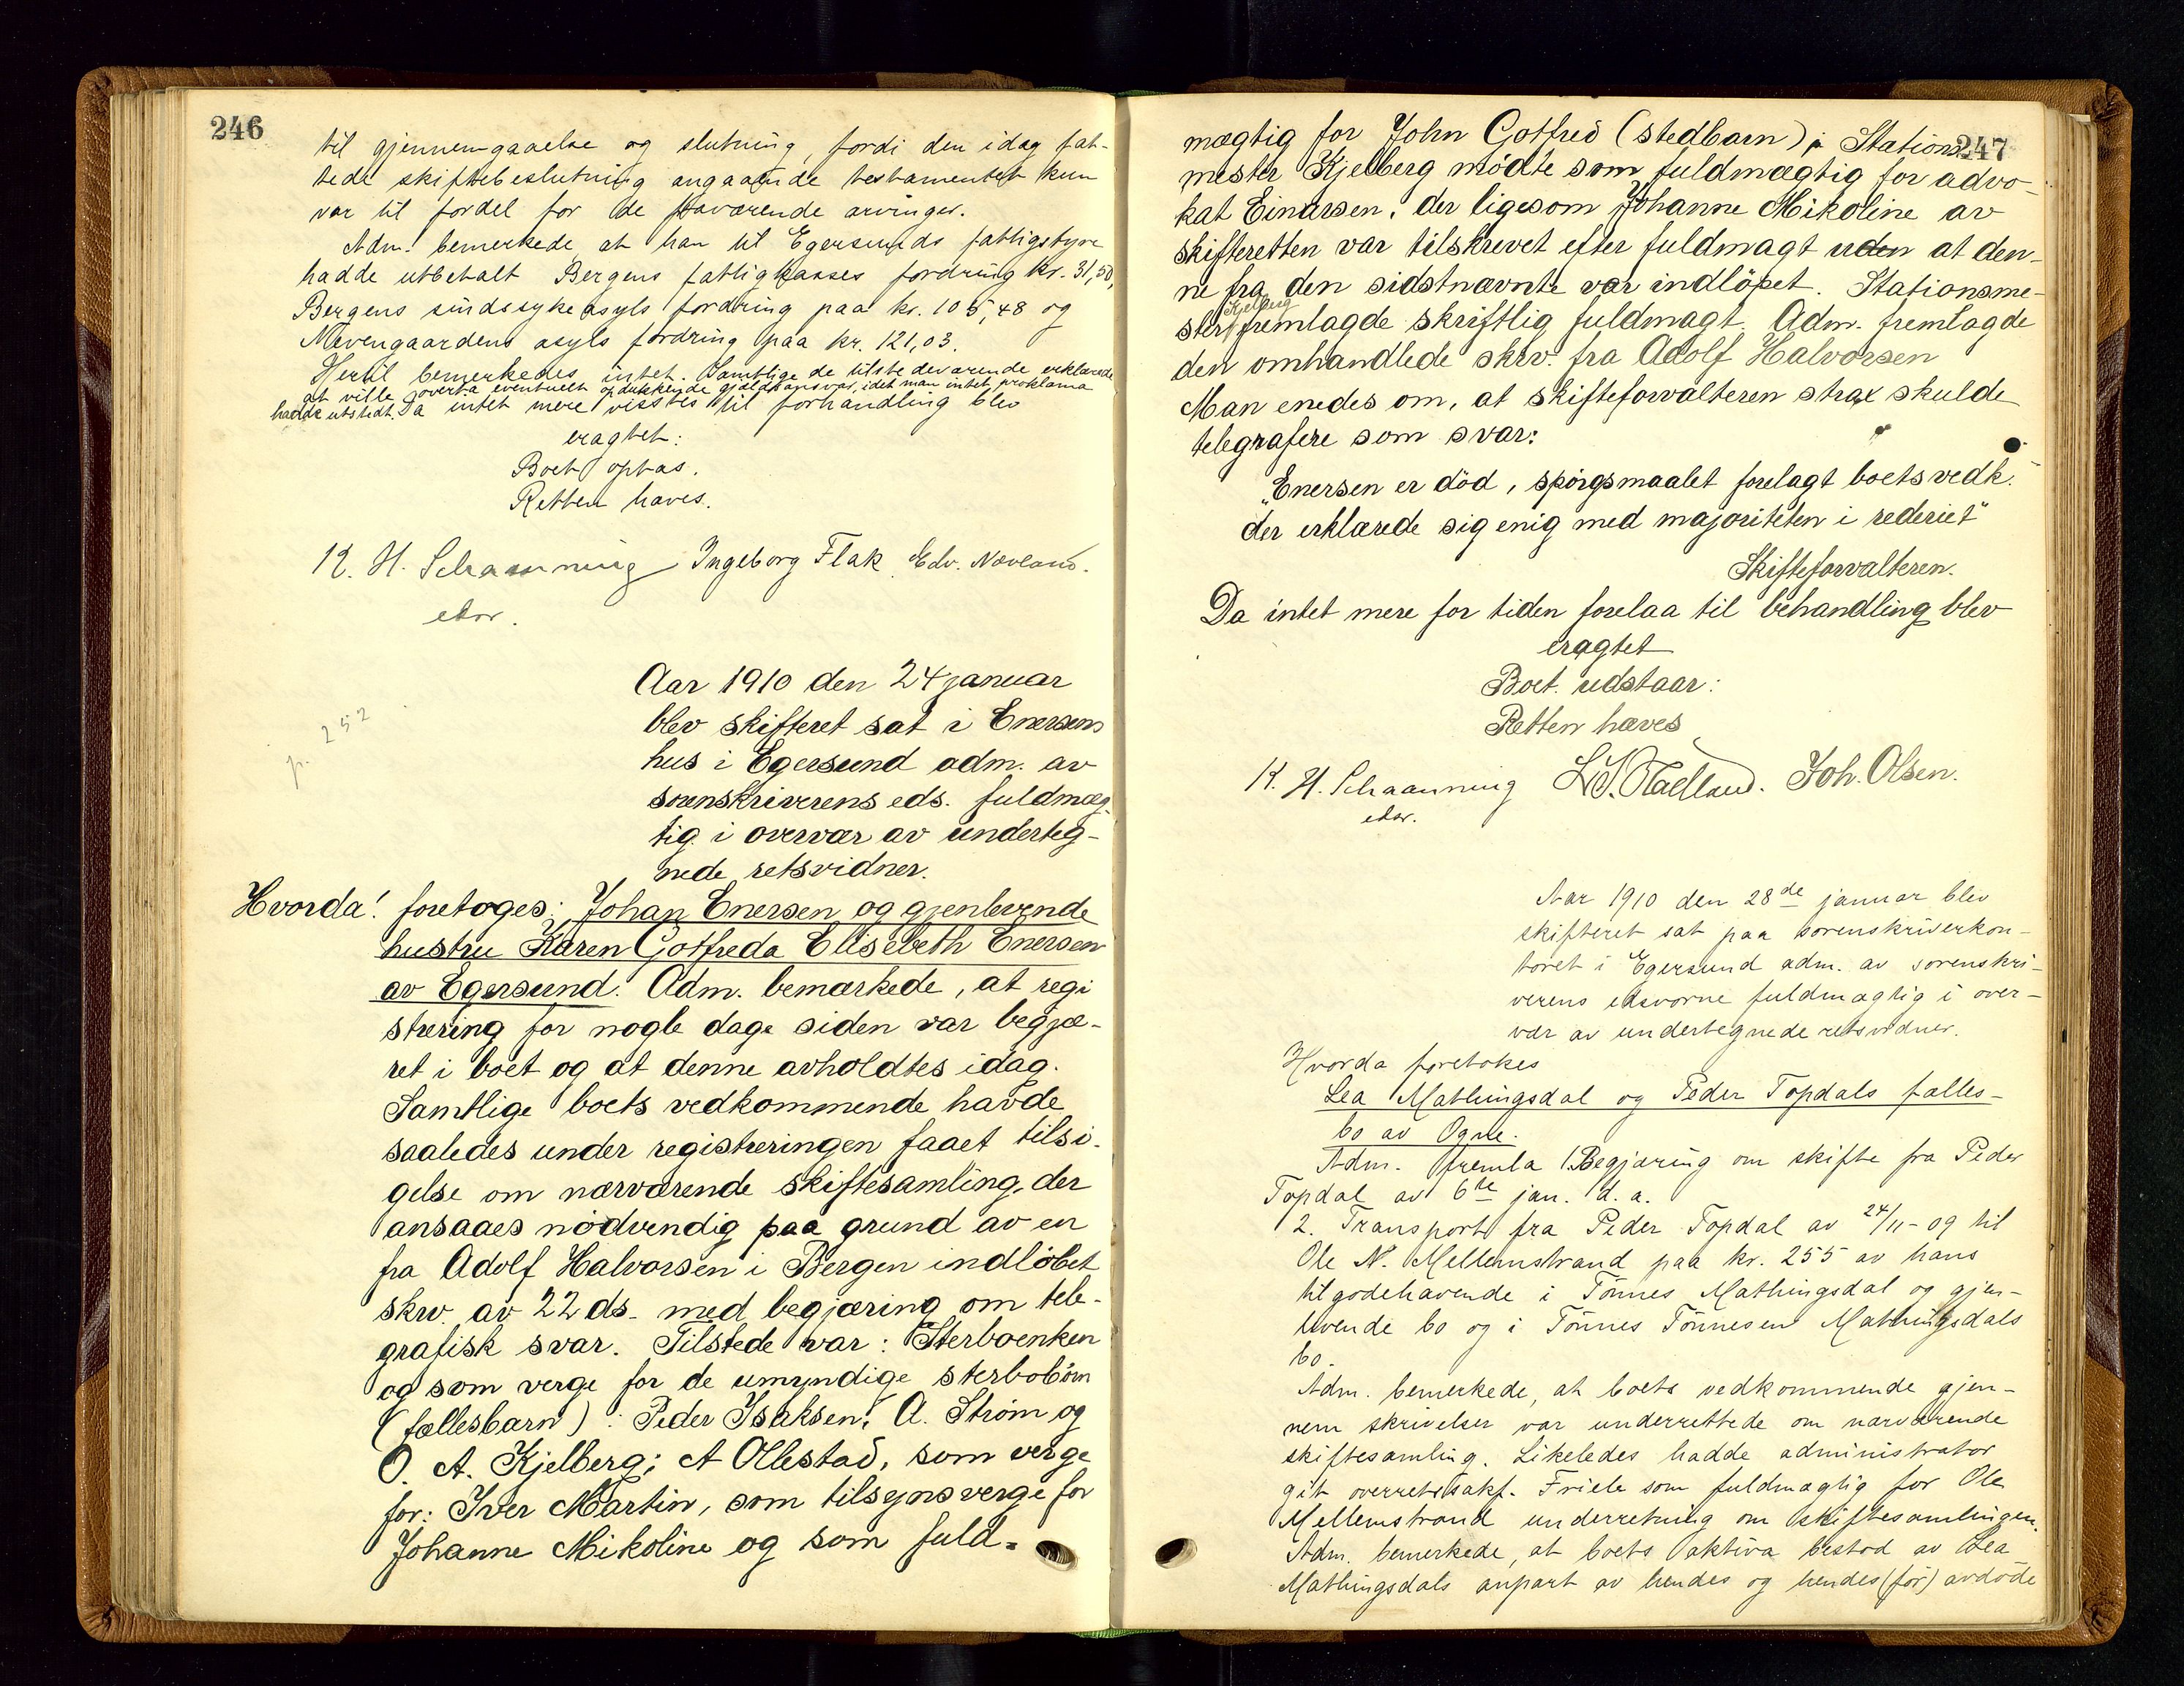 246
til gjennemgaaelse og slutning, fordi den idag fat-
tede skiftebeslutning angaaende testamentet kun
var til fordel for de fraværende arvinger.
Adm. bemerkede at han til Egersunds fattigstyre
hadde utbetalt Bergens fattigkasses fordring kr. 31,50,
Bergens sindssykeasyls fordring paa kr. 105,48 og
Nevengaardens asyls fordring paa kr. 121,03.
Hertil bemerkedes intet. Samtlige de tilstedeværende erklærede
at ville overta eventuelt opdukkende gjældsansvar, idet man intet proklama
hadde utstedt. Da intet mere visstes til forhandling blev
eragtet:
Boet optas.
Retten hæves.
K. H. Schaanning Ingeborg Flak Edv. Nævland.
edsv.
Aar 1910 den 24 januar
blev skifteret sat i Enersens
hus i Egersund adm. av
sorenskriverens eds. fuldmæg-
tig i overvær av underteg-
nede retsvidner.
p. 252
Hvorda! foretoges: Johan Enersen og gjenlevende
hustru Karen Gotfreda Elisebeth Enersen
av Egersund. Adm. bemærkede, at regi
strering for nogle dage siden var begjæ-
ret i boet og at denne avholdtes idag.
Samtlige boets vedkommende havde
saaledes under registreringen faaet tilsi-
gelse om nærværende skiftesamling, der
ansaaes nödvendig paa grund av en
fra Adolf Halvorsen i Bergen indlöbet
skrv. av 22 ds. med begjæring om tele-
grafisk svar. Tilstede var: Sterboenken
og som verge for de umyndige sterbobörn
(fællesbarn): Peder Isaksen; A. Ström og
O. A. Kjelberg; A Ollestad, som verge
for: Iver Martin, som tilsynsverge for
Johanne Mikoline og som fuld-
247
mægtig for John Gotfred (stedbarn) Stations-
mester Kjelberg mödte som fuldmægtig for advo-
kat Einarsen, der ligesom Johanne Mikoline av
skifteretten var tilskrevet efter fuldmagt uden at den-
ne fra den sidstnævnte var indlöpet. Stationsme-
ster Kjelberg fremlagde skriftlig fuldmagt. Adm. fremlagde
den omhandlede skrv. fra Adolf Halvorsen
Man enedes om, at skifteforvalteren strax skulde
telegrafere som svar:
„Enersen er död, spörgsmaalet forelagt boets vedk.
der erklærede sig enig med majoriteten i rederiet"
Skifteforvalteren.
Da intet mere for tiden forelaa til behandling blev
eragtet
Boet udstaar:
Retten hæves
K. H. Schaanning Joh. Olsen.
edsv.
Aar 1910 den 28de januar blev
skifteret sat paa sorenskriverkon-
toret i Egersund adm. av sorenskri-
verens edsvorne fuldmægtig i over-
vær av undertegnede retsvidner.
Hvorda foretokes
Lea Mathingsdal og Peder Topdals fælles-
bo av Ogne.
Adm. fremla 1. Begjæring om skifte fra Peder
Topdal av 6te jan. d. a.
2. Transport fra Peder Topdal av 24/11-09 til
Ole N. Mellemstrand paa kr. 255 av hans
tilgodehavende i Tönnes Mathingsdal og gjen-
levende bo og i Tönnes Tönnesen Mathingsdals
bo.
Adm. bemerkede, at boets vedkommende gjen-
nem skrivelser var underrettede om nærværende
skiftesamling. Likeledes hadde administrator
git overretssakf. Friele som fuldmægtig for Ole
Mellemstrand underretning om skiftesamlingen.
Adm. bemerkede, at boets aktiva bestod av Lea
Mathingsdals anpart av hendes og hendes (för) avdöde